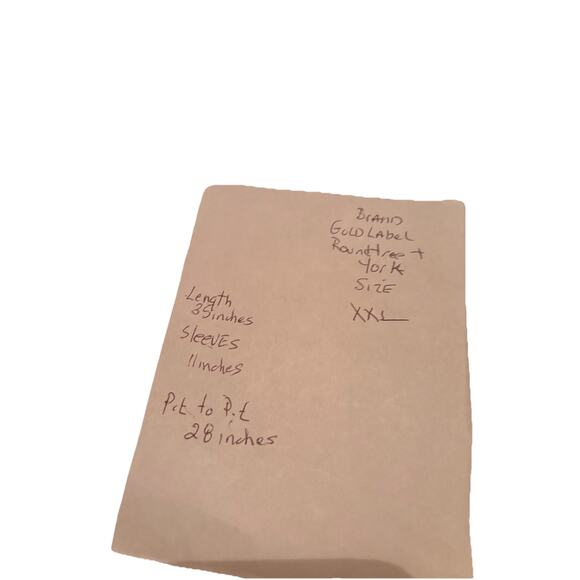 Brand
Gold Label
Roundtree +
York
Size
XXL
Length
35inches
Sleeves
11inches
Pit to Pit
28 inches